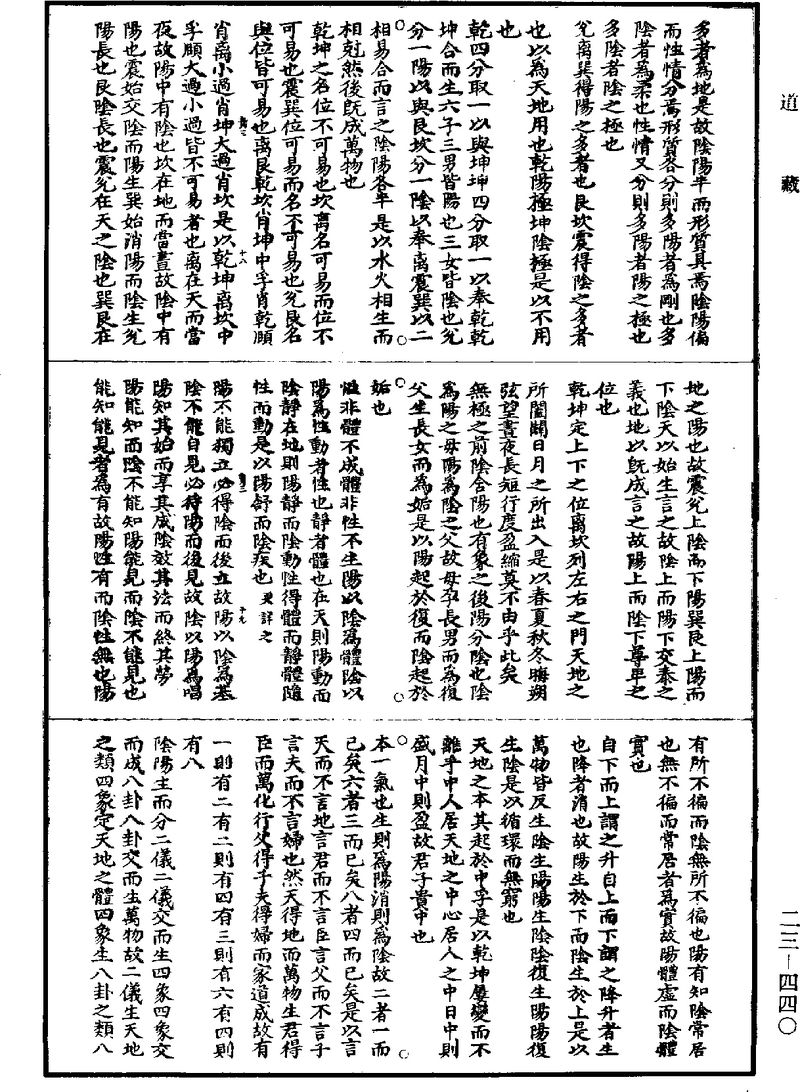 道藏
多者為地是故陰陽半而形質具焉陰陽偏
而性情分焉形質各分則多陽者為剛也多
陰者為柔也性情又分則多陽者陽之極也
多陰者陰之極也
兌離巽得陽之多者也艮坎震得陰之多者
也以為天地用也乾陽極坤陰極是以不用
也
乾四分取一以與坤坤四分取一以奉乾乾
坤合而生六子三男皆陽也三女皆陰也兌
分一陽以與艮坎分一陰以奉離震巽以二
相易合而言之陰陽各半是以水火相生而
相剋然後旣成萬物也
乾坤之名位不可易也坎离名可易而位不
可易也震巽位可易而名不可易也兌艮名
與位皆可易也离艮乾坎肖坤中孚肖乾頤
肖离小過肖坤大過肖坎是以乾坤离坎中
孚頤大過小過皆不可易者也离在天而當
夜故陽中有陰也坎在地而當晝故陰中有
陽也震始交陰而陽生巽始消陽而陰生兌
陽長也艮陰長也震兌在天之陰也巽艮在
地之陽也故震兌上陰而下陽巽艮上陽而
下陰天以始生言之故陰上而陽下交泰之
義也地以旣成言之故陽上而陰下尊卑之
位也
乾坤定上下之位离坎列左右之門天地之
所闔闢日月之所出入是以春夏秋冬晦朔
弦望晝夜長短行度盈縮莫不由乎此矣
無極之前陰含陽也有象之後陽分陰也陰
為陽之母陽為陰之父故母孕長男而為復
父生長女而為姤是以陽起於復而陰起於
姤也
性非體不成體非性不生陽以陰為體陰以
陽為性動者性也靜者體也在天則陽動而
陰靜在地則陽靜而陰動性得體而靜體隨
性而動是以陽舒而陰疾也更詳之
陽不能獨立必得陰而後立故陽以陰為基
陰不能自見必待陽而後見故陰以陽為唱
陽知其始而享其成陰效其法而終其勞
陽能知而陰不能知陽能見而陰不能見也
能知能見者為有故陽性有而陰性無也陽
有所不徧而陰無所不徧也陽有知陰常居
也無不徧而常居者為實故陽體虛而陰體
實也
自下而上謂之升自上而下謂之降升者生
也降者消也故陽生於下而陰生於上是以
萬物皆反生陰生陽陽生陰陰復生陽陽復
生陰是以循環而無窮也
天地之本其起於中乎是以乾坤屢變而不
離乎中人居天地之中心居人之中日中則
盛月中則盈故君子貴中也
本一氣也生則為陽消則為陰故二者一而
已矣六者三而已矣八者四而已矣是以言
天而不言地言君而不言臣言父而不言子
言夫而不言婦也然天得地而萬物生君得
臣而萬化行父得子夫得婦而家道成故有
一則有二有二則有四有三則有六有四則
有八
陰陽生而分二儀二儀交而生四象四象交
而成八卦八卦交而生萬物故二儀生天地
之類四象定天地之體四象生八卦之類八
二三－四四〇